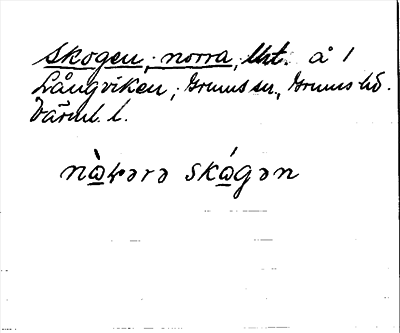 Skogen, norra, lht. å 1
Långviken, Grums sn., Grums hd.
Värml. l.
nàꞎərə skágən